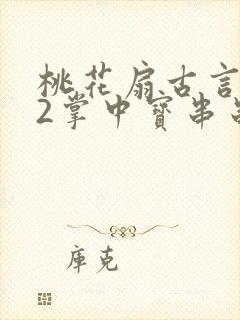 桃花扇古言
2掌中寳串
庫克